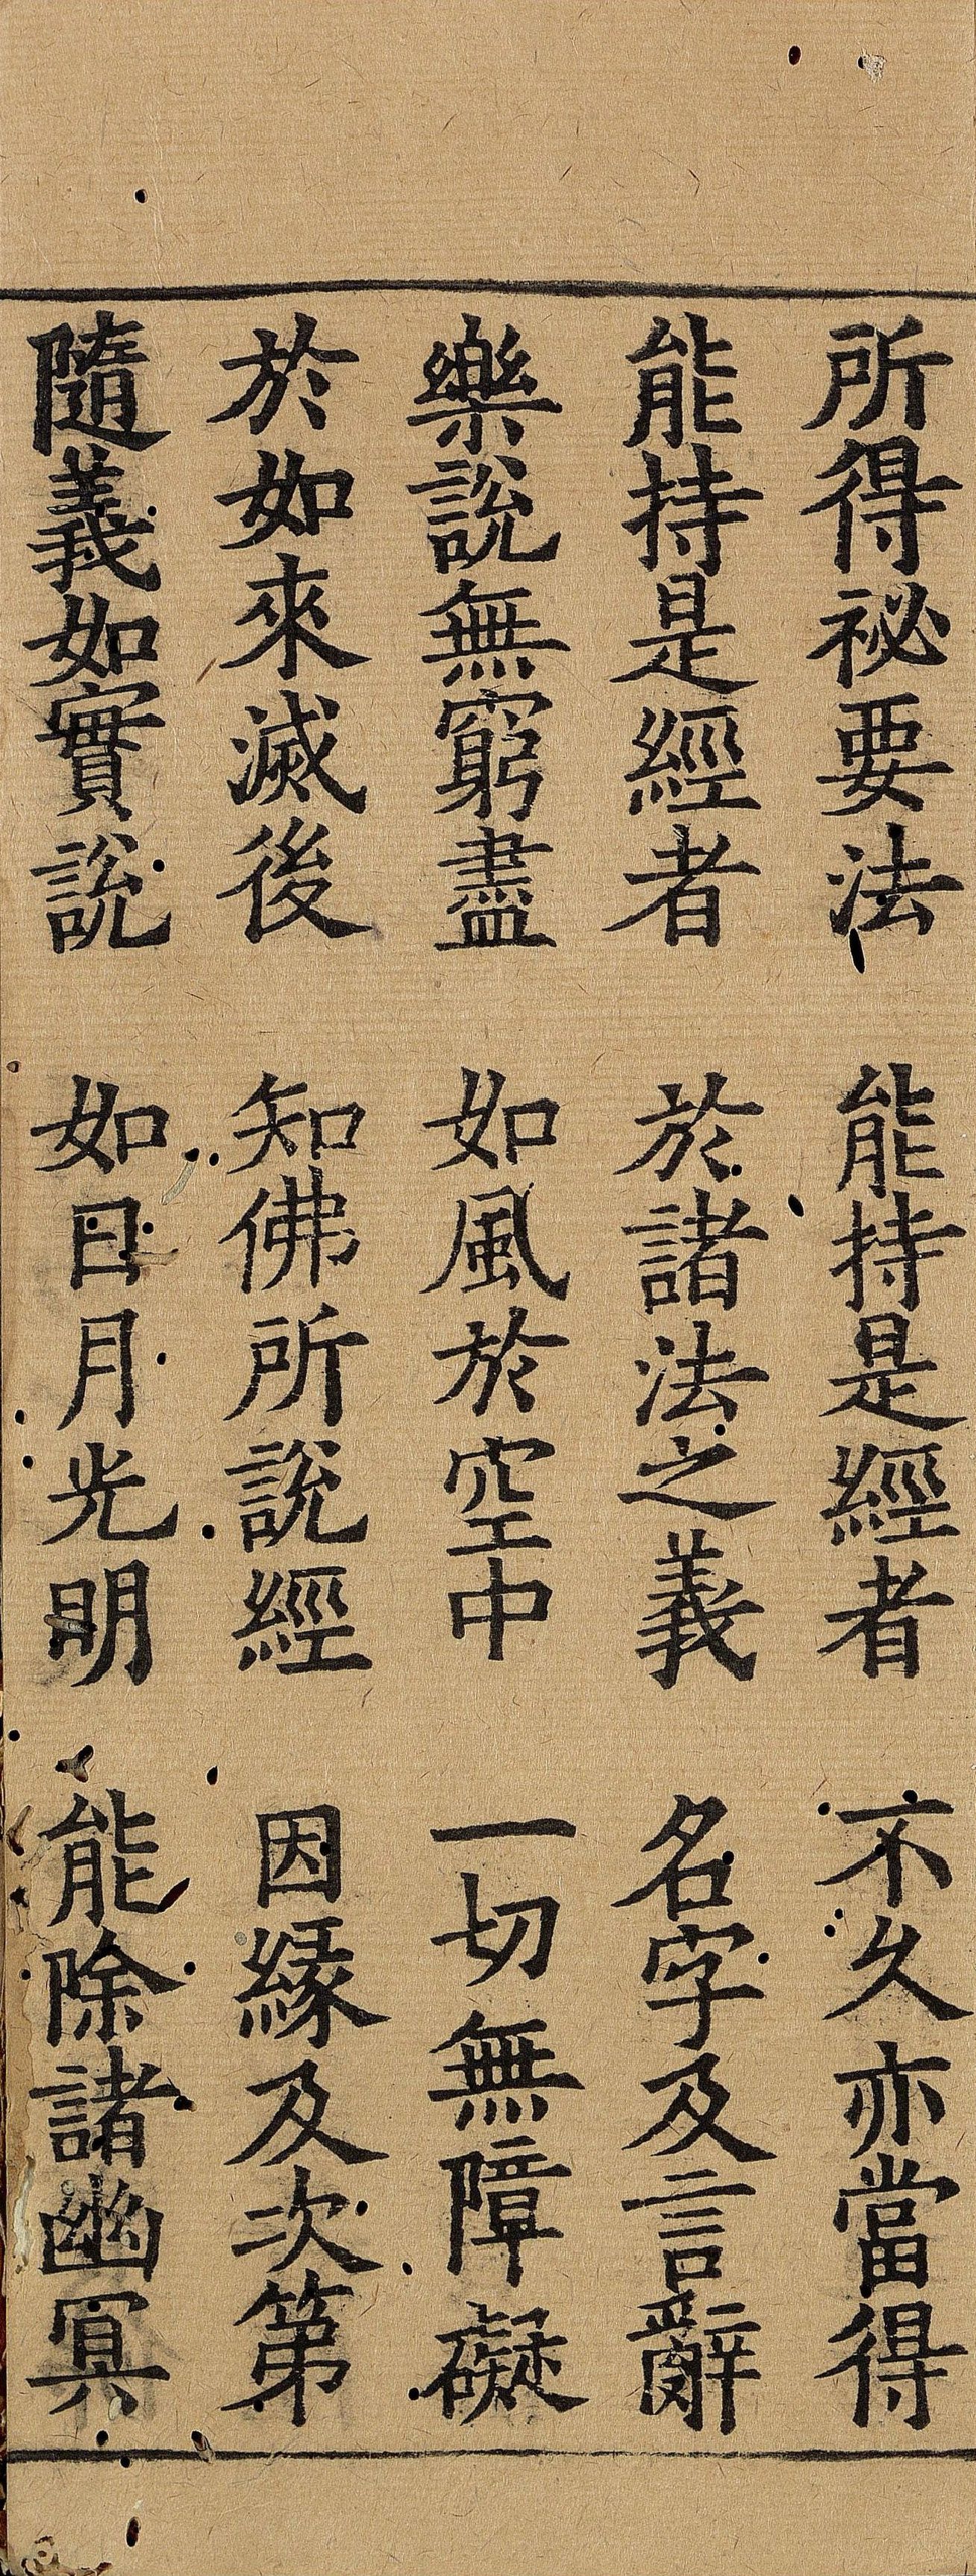 所得祕要法　能持是經者　不久亦當得
能持是經者　於諸法之義　名字及言辭
樂說無窮盡　如風於空中　一切無障礙
於如來滅後　知佛所說經　因緣及次第
隨義如實說　如日月光明　能除諸幽冥